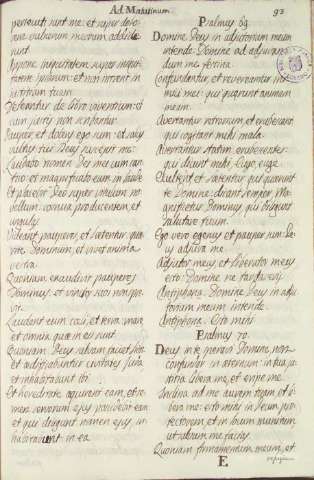 Ad Matutinum.
93
persecuti sunt me: et super dolo-
rem vulnerum meorum addide-
runt
Appone iniquitatem super iniqui-
tatem ipsorum: et non intrent in
justitiam tuam
Deleantur de libro viventium: et
cum justis non scribantur
Pauper, et dolens ego sum: et salus
Deus suscepit me
Laudabo nomen Dei mei cum can-
tico: et magnificabo eum in laude
Et placebit Deo super vitulum no-
vellum: cornua producentem, et
ungulas
Videant pauperes, et laetentur: quae-
rite Dominum, et vivet anima
vestra
Quoniam exaudivit pauperes
Dominus: et vinctos suos non

Laudent eum coeli, et terra: mare
et omnia quae in eis sunt
Quoniam Deus salvam faciet Sion:
et aedificabuntur civitates Juda
et inhabitabunt ibi
et haereditate acquirent eam, et se-
men servorum ejus possidebit eam
et qui diligunt nomen ejus in-
habitabunt in ea
Psalmus 69.
Domine Deus in adjutorium meum
intende: Domine ad adjuvan-
dum me festina
Confundantur, et revereantur ini-
mici mei: qui quaerunt animam
meam
Avertantur retrorsum, et erubescant
qui cogitant mihi mala
Avertantur statim erubescentes:
qui dicunt mihi: Euge euge
Exultent et laetentur qui quaerunt
te Domine: dicant semper Ma-
gnificetur Dominus qui diligunt
salutare tuum
Ego vero egenus et pauper sum: De-
us adjuva me
Adjutor meus, et liberator meus
esto: Domine ne
Antiphona. Domine Deus in adju-
torium meum intende
Antiphona. Esto mihi
Psalmus 70.
Deus in te speravi Domine, non
confundar in aeternum: in tua jus-
titia libera me, et eripe me
Inclina ad me aurem tuam, et li-
bera me: esto mihi in Deum pro-
tectorem, et in locum munitum
ut salvum me facias
Quoniam firmamentum meum, et
E
refugium